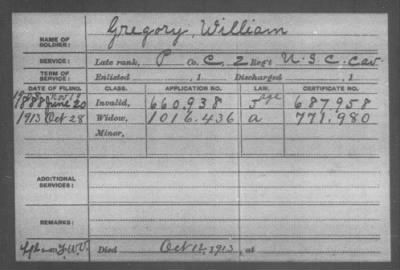 NAME OF SOLDIER: Gregory, William
SERVICE: Late rank, P Co. C, 2 Reg't U.S.C. Cav.
TERM OF SERVICE: Enlisted , 1 Discharged , 1
DATE OF FILING. CLASS. APPLICATION NO. LAW. CERTIFICATE NO.
1888 June 20 Invalid, 660.938 age 687958
1913 Oct 28 Widow, 1016.436 a 771.980
Minor,
ADDITIONAL SERVICES:
REMARKS:
Died Oct 12, 1913, at